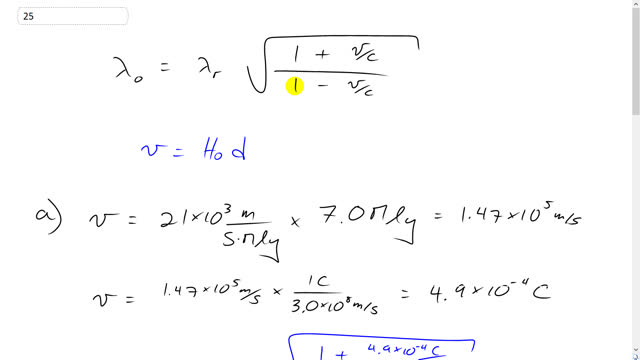 25
λ₀ = λᵣ √((1 + v/c)/(1 − v/c))
v = H₀d
a) v = 21×10³ m/(s·Mly) × 7.0 Mly = 1.47×10⁵ m/s
v = 1.47×10⁵ m/s × 1C/(3.0×10⁸ m/s) = 4.9×10⁻⁴ C
√(1 + 4.9×10⁻⁴ C